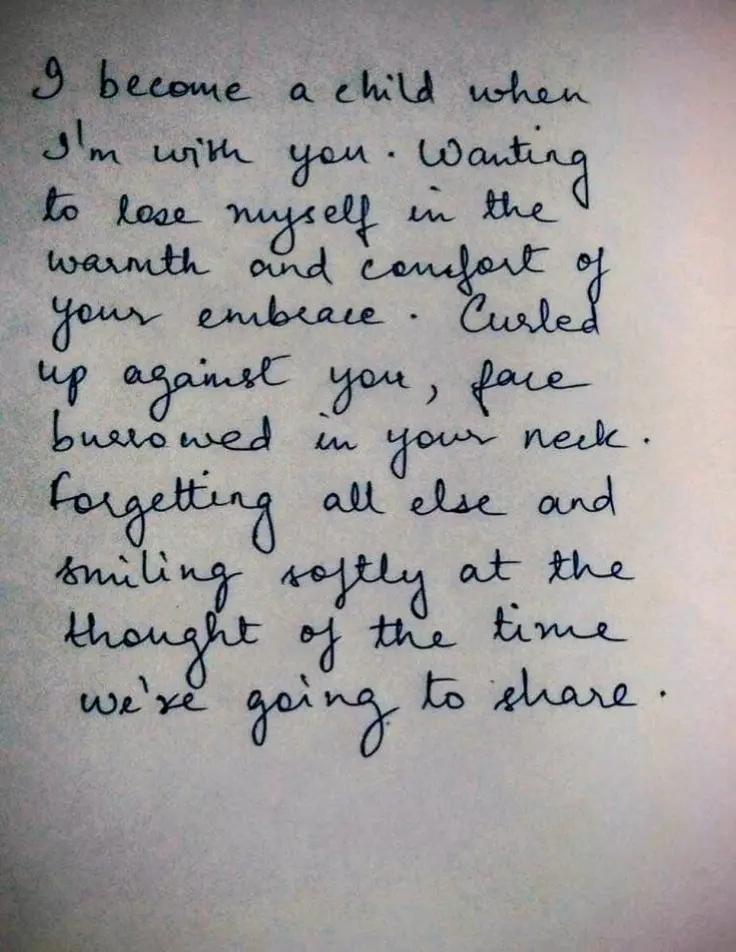 I become a child when
I'm with you. Wanting
to lose myself in the
warmth and comfort of
your embrace. Curled
up against you, face
burrowed in your neck.
Forgetting all else and
smiling softly at the
thought of the time
we're going to share.